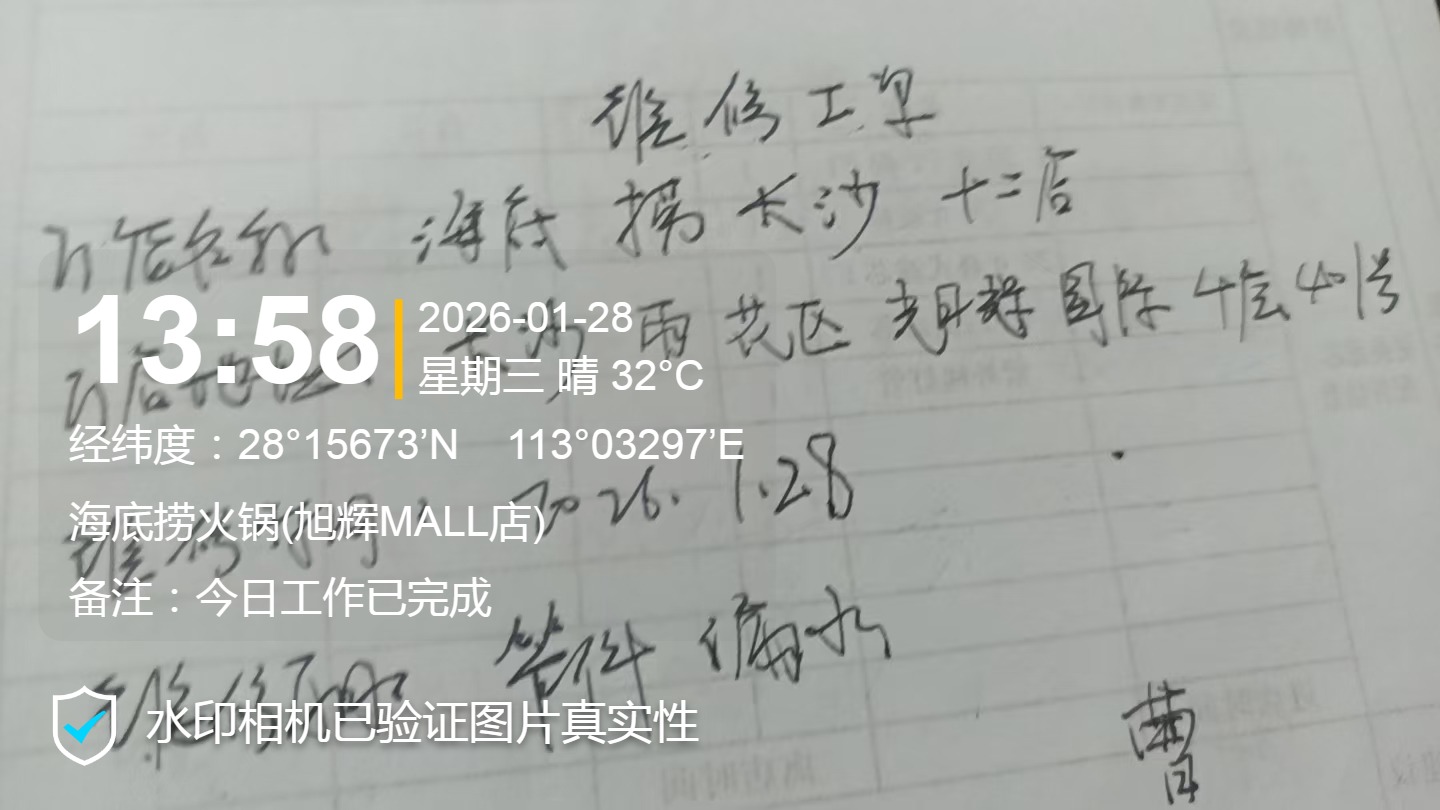 维修工单
门店名称 海底捞长沙十二店
门店地址: 长沙雨花区光辉国际4层401号
13:58
2026-01-28
星期三 晴 32°C
经纬度：28°15673’N 113°03297’E
维修时间 2026.1.28
海底捞火锅(旭辉MALL店)
备注：今日工作已完成
管件漏水
水印相机已验证图片真实性